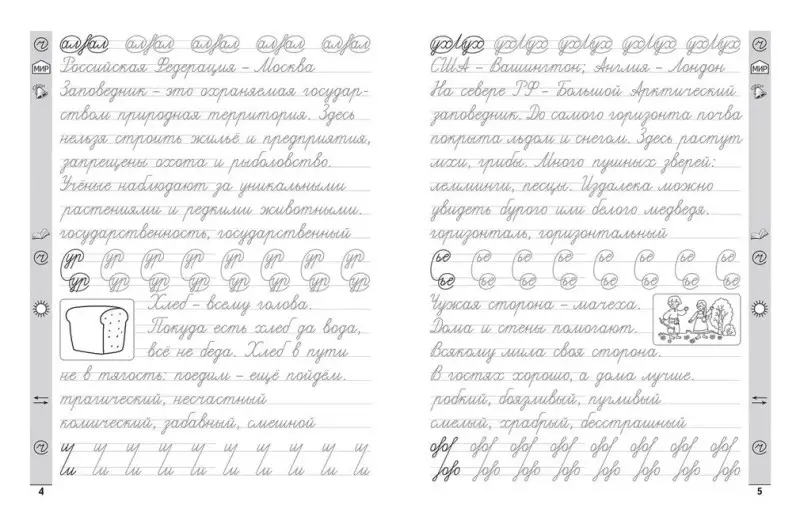 ал/ал ал/ал ал/ал ал/ал ал/ал
МИР
Российская Федерация – Москва
Заповедник – это охраняемая государ-
ством природная территория. Здесь
нельзя строить жильё и предприятия,
запрещены охота и рыболовство.
Учёные наблюдают за уникальными
растениями и редкими животными.
государственность, государственный
ур ур ур ур ур ур ур ур
ур ур ур ур ур ур ур ур
Хлеб – всему голова.
Покуда есть хлеб да вода,
всё не беда. Хлеб в пути
не в тягость: поедим – ещё пойдём.
трагический, несчастный
комический, забавный, смешной
4
ух/ух ух/ух ух/ух ух/ух ух/ух
МИР
США – Вашингтон; Англия – Лондон
На севере РФ – Большой Арктический
заповедник. До самого горизонта почва
покрыта льдом и снегом. Здесь растут
мхи, грибы. Много пушных зверей:
лемминги, песцы. Издалека можно
увидеть бурого или белого медведя.
горизонталь, горизонтальный
ье ье ье ье ье ье ье ье
ье ье ье ье ье ье ье ье
Чужая сторона – мачеха.
Дома и стены помогают.
Всякому мила своя сторона.
В гостях хорошо, а дома лучше.
робкий, боязливый, пугливый
смелый, храбрый, бесстрашный
5